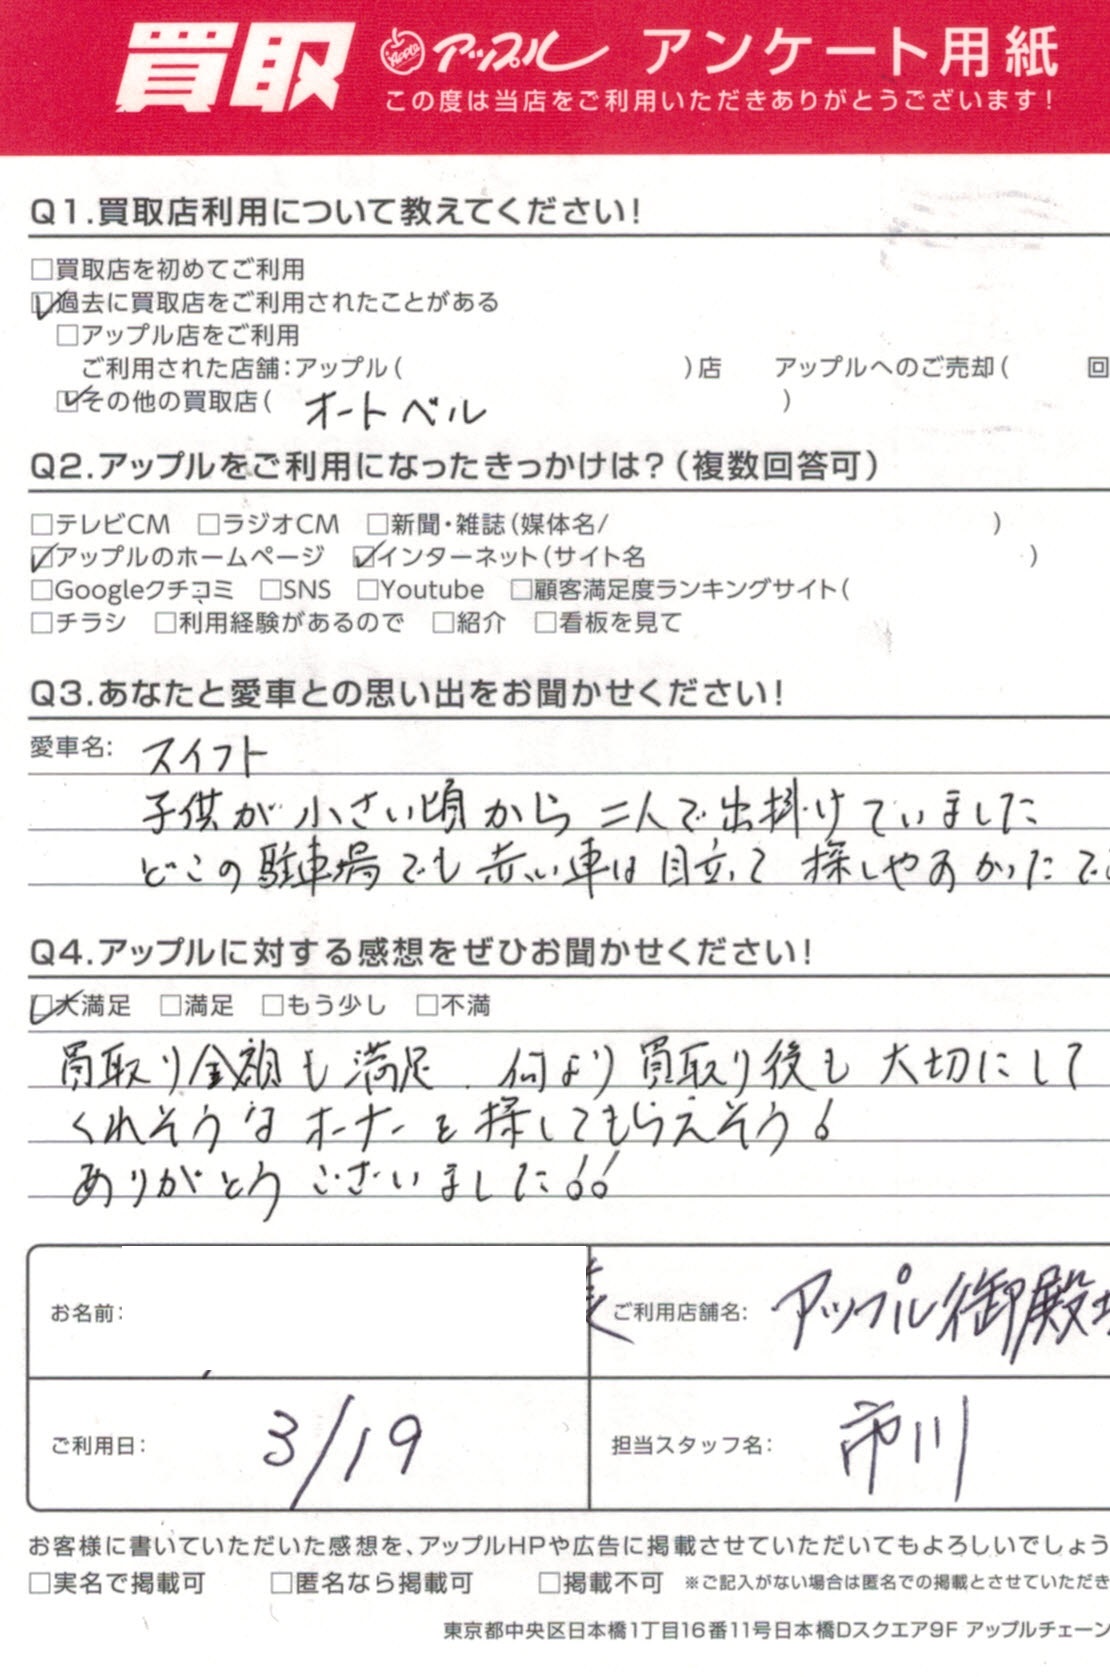 買取 アップル アンケート用紙
この度は当店をご利用いただきありがとうございます!
Q1.買取店利用について教えてください!
□買取店を初めてご利用
☑過去に買取店をご利用されたことがある
□アップル店をご利用
ご利用された店舗:アップル( )店 アップルへのご売却( 回
☑その他の買取店( オートベル )
Q2.アップルをご利用になったきっかけは?(複数回答可)
□テレビCM □ラジオCM □新聞・雑誌(媒体名/ )
☑アップルのホームページ ☑インターネット(サイト名 )
□Googleクチコミ □SNS □Youtube □顧客満足度ランキングサイト(
□チラシ □利用経験があるので □紹介 □看板を見て
Q3.あなたと愛車との思い出をお聞かせください!
愛車名: スイフト
子供が小さい頃から二人で出掛けていました
どこの駐車場でも赤い車は目立って探しやすかったで
Q4.アップルに対する感想をぜひお聞かせください!
☑大満足 □満足 □もう少し □不満
買取り金額も満足.何より買取り後も大切にして
くれそうなオーナーを探してもらえそう!
ありがとうございました!!
お名前: 様 ご利用店舗名: アップル御殿場
ご利用日: 3/19 担当スタッフ名: 市川
お客様に書いていただいた感想を、アップルHPや広告に掲載させていただいてもよろしいでしょう
□実名で掲載可 □匿名なら掲載可 □掲載不可 ※ご記入がない場合は匿名での掲載とさせていただき
東京都中央区日本橋1丁目16番11号日本橋Dスクエア9F アップルチェーン